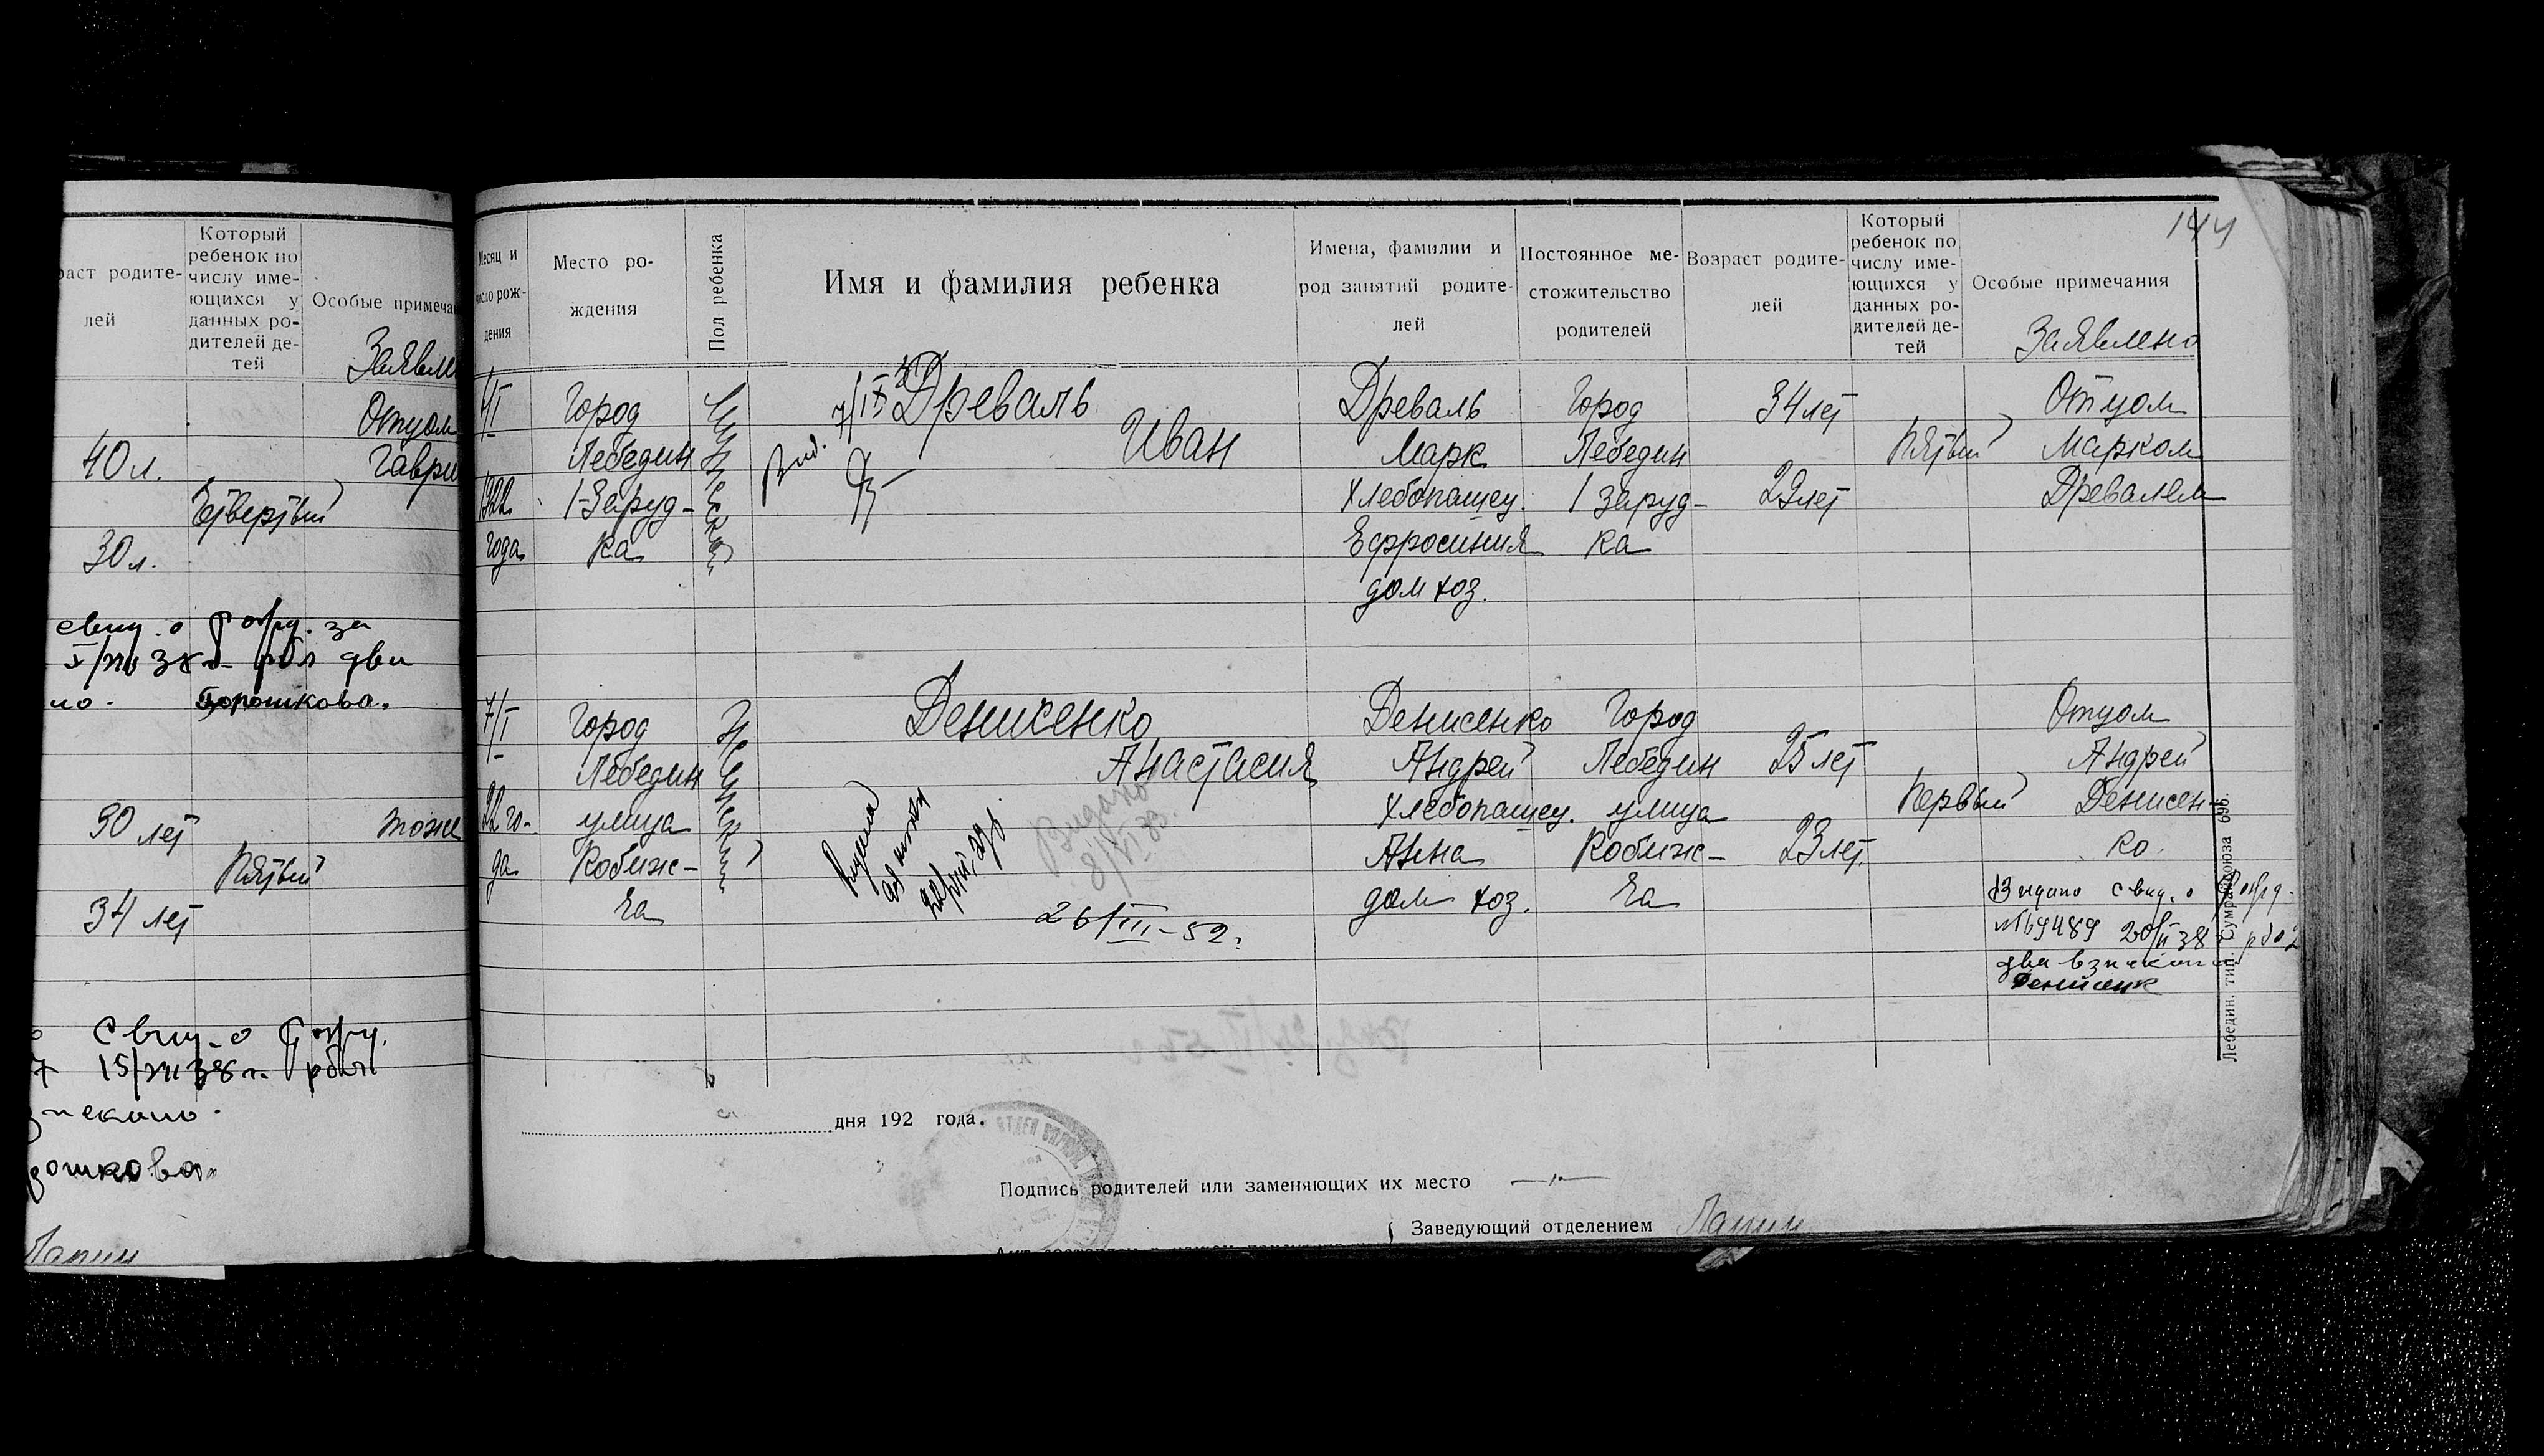 раст родите-
лей
Который
ребенок по
числу име-
ющихся у
данных ро-
дителей де-
тей
Особые примеча
Заявле
40 л.
30 л.
Четвертый
Отцом
Гаври
свид. о рожд. за
руб два
но. Горошкова.
30 лет
34 лет
Пятый
тоже
Свид. о рожд.
7 15/VII 38 г. рбл
зыскано.
рошкова
Лапин
144
Месяц и
число рож-
дения
Место ро-
ждения
Пол ребенка
Имя и фамилия ребенка
Имена, фамилии и
род занятий родите-
лей
Постоянное ме-
стожительство
родителей
Возраст родите-
лей
Который
ребенок по
числу име-
ющихся у
данных ро-
дителей де-
тей
Особые примечания
Заявлено
1/I
1922
года
Город
Лебедин
1-Заруд-
ка
Мужской
Древаль
Иван
Древаль
Марк
Хлебопашец.
Ефросиния
дом хоз.
Город
Лебедин
1 Заруд-
ка
34 лет
29 лет
Пятый
Отцом
Марком
Древалем
7/I
22 го-
да
Город
Лебедин
улица
Кобиж-
ча
Женский
Денисенко
Анастасия
Выдано
26/III-52.
Денисенко
Андрей
Хлебопашец.
Анна
дом хоз.
Город
Лебедин
улица
Кобиж-
ча
25 лет
23 лет
Первый
Отцом
Андрей
Денисен-
ко.
Выдано свид. о рожд.
№ 69489 20/II 38 г. рб 2
два взыскано
Лебедин. тип. Сумрайсоюза 696.
дня 192 года.
Подпись родителей или заменяющих их место
Заведующий отделением Лапин